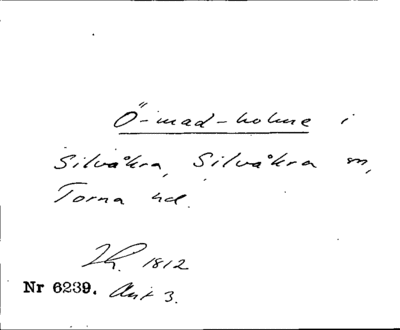 Ö-mad-holme i
Silvåkra, Silvåkra sn,
Torna hd.
1812
Nr 6239. Akt 3.